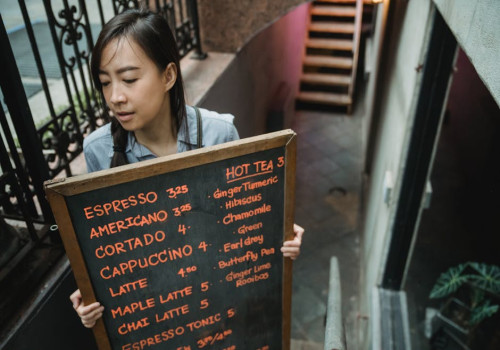 ESPRESSO 3.25
AMERICANO 3.25
CORTADO 4.
CAPPUCCINO 4
LATTE 4.50
MAPLE LATTE 5
CHAI LATTE 5
ESPRESSO TONIC 5
HOT TEA 3
· Ginger Turmeric
· Hibiscus
Chamomile
· Green
· Earl Grey
· Butterfly Pea
· Ginger Lime
Rooibos